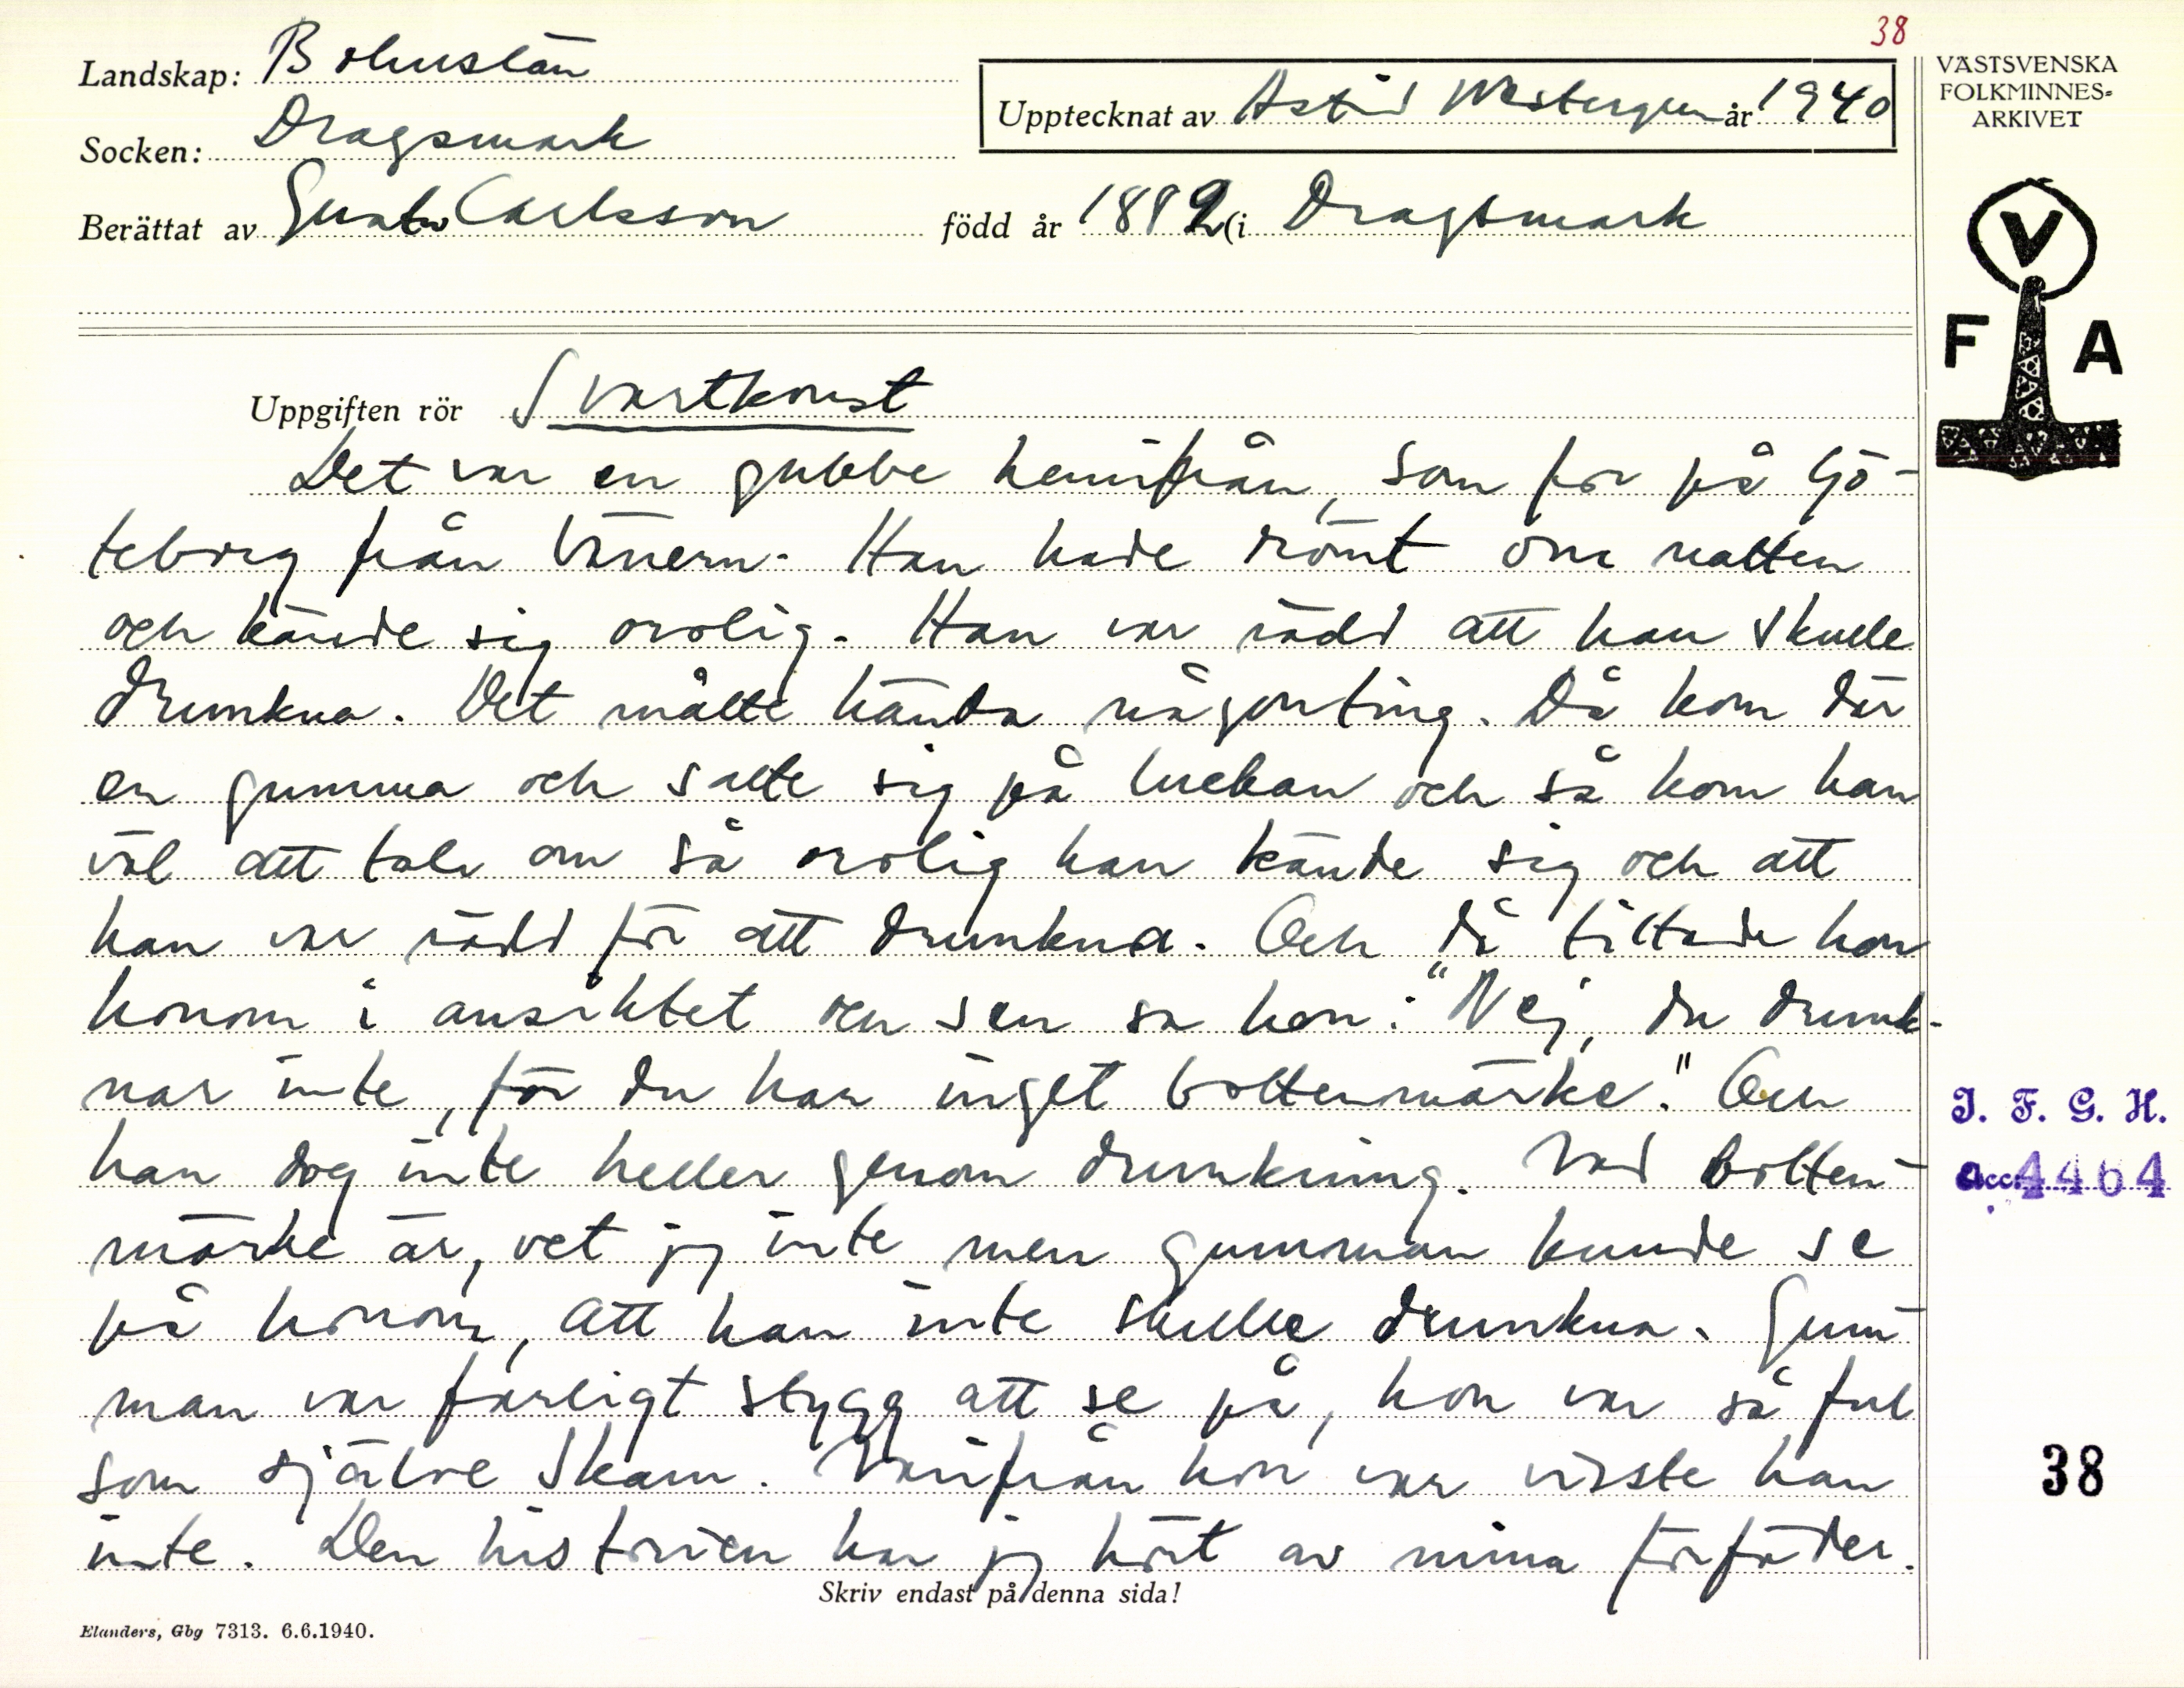 38
Landskap: Bohuslän
Socken: Dragsmark
Upptecknat av Astrid Westergren år 1940
Berättat av Gustav Carlsson född år 1892 (i Dragsmark
VÄSTSVENSKA
FOLKMINNES-
ARKIVET
V
F A
Uppgiften rör Svartkonst
Det var en gubbe hemifrån, som for på Gö-
teborg från Vänern. Han hade drömt om natten
och kände sig orolig. Han var rädd att han skulle
drunkna. Det måtte hända någonting. Då kom där
en gumma och satte sig på luckan och så kom han
väl att tala om så orolig han kände sig och att
han var rädd för att drunkna. Och då tittade hon
honom i ansiktet och sen sa hon: "Nej, du drunk-
nar inte, för du har inget bottenmärke." Och
han dog inte heller genom drunkning. Vad botten-
märke är, vet jag inte men gumman kunde se
på honom, att han inte skulle drunkna. Gum-
man var farligt stygg att se på, hon var så ful
som själve Skam. Varifrån hon var visste han
inte. Den historien har jag hört av mina förfäder.
Skriv endast på denna sida!
Elanders, Gbg 7313. 6.6.1940.
I. F. G. H.
Acc. 4464
38